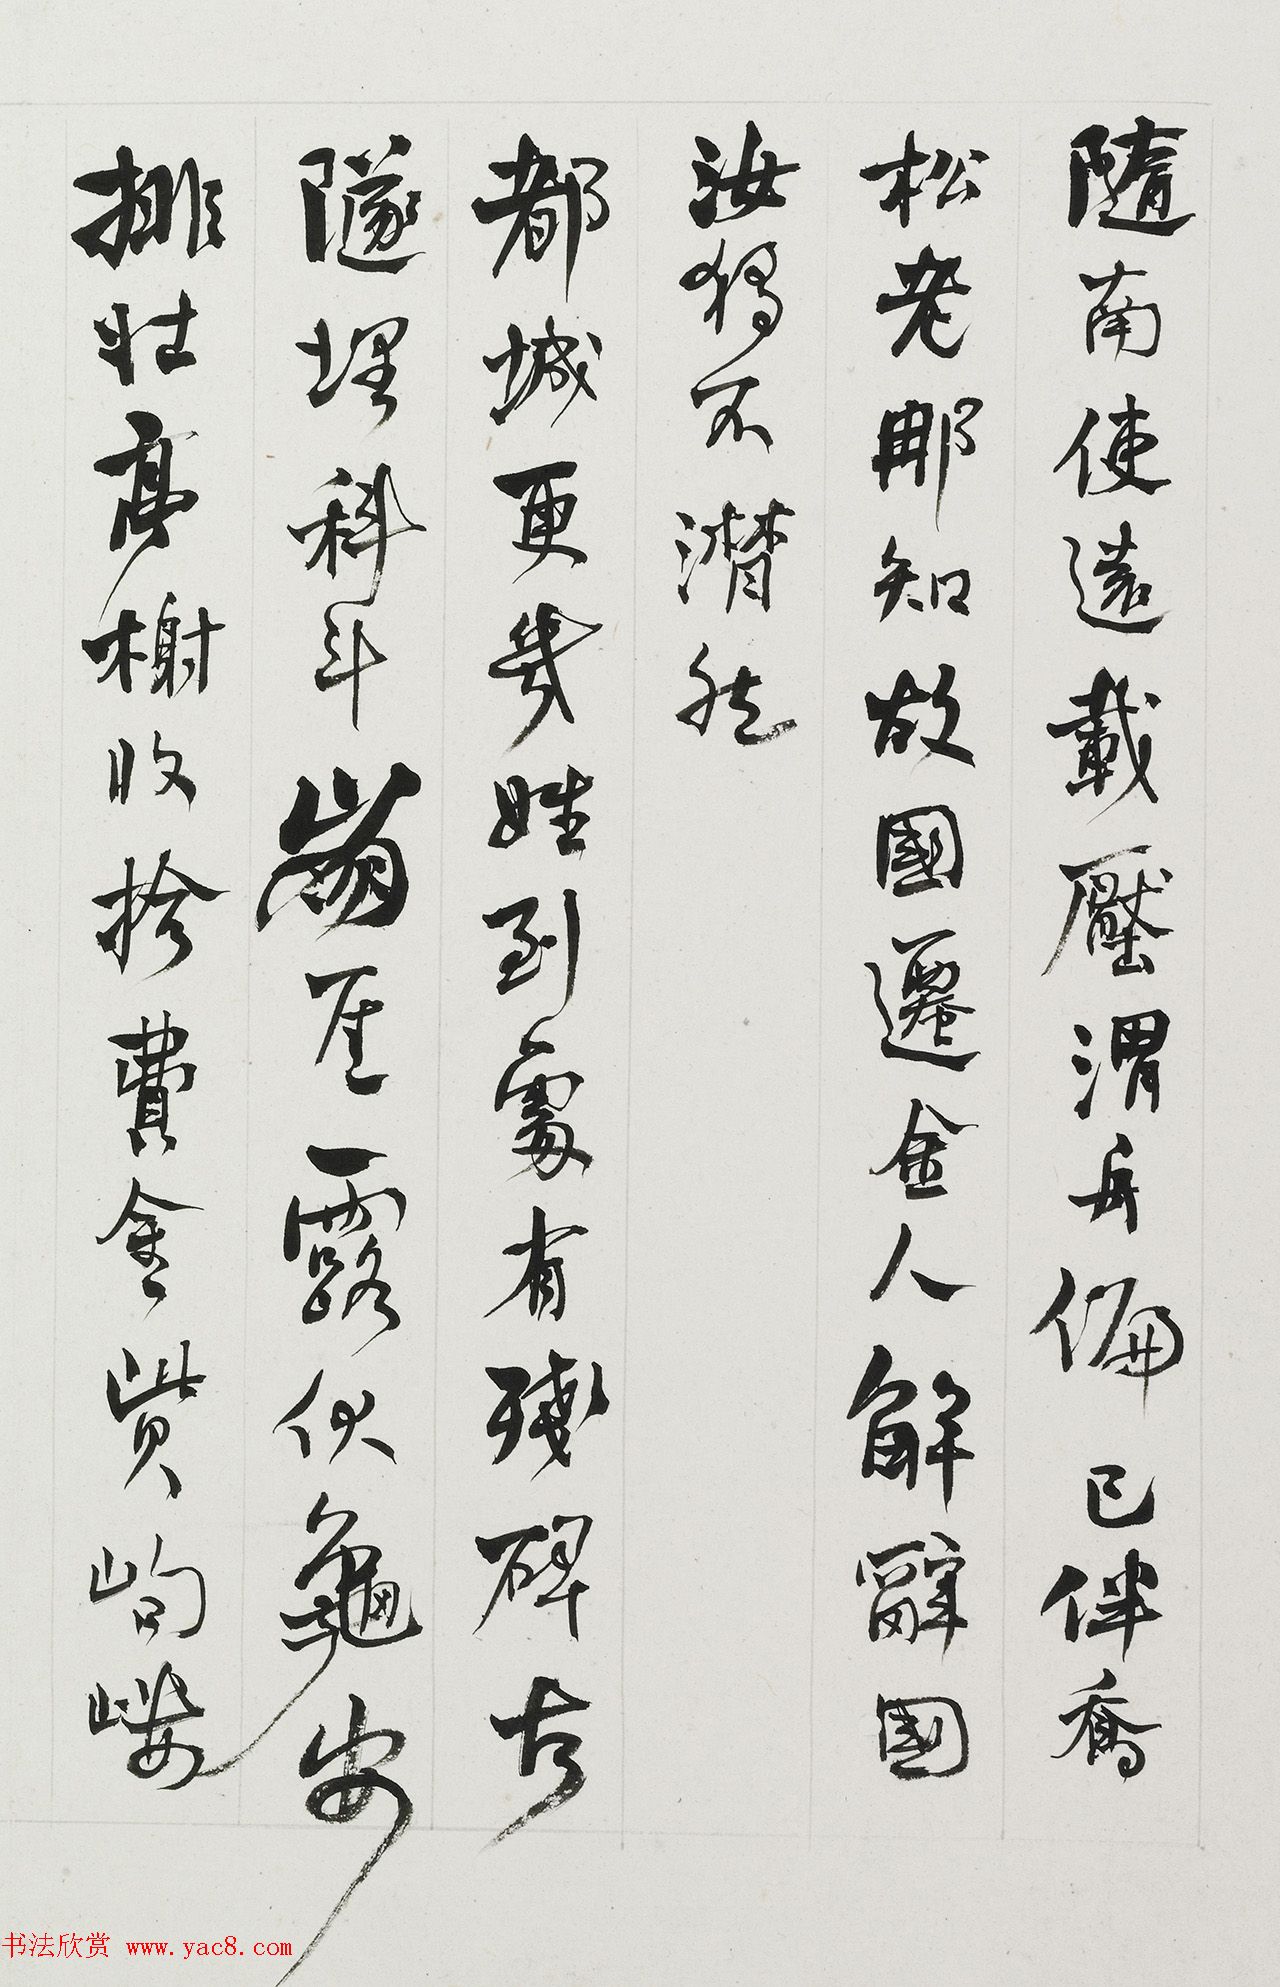 隨南使遠載壓渭舟偏已伴喬
松老那知故國遷金人解辭國
汝獨不潸然
都城更幾姓到處有殘碑古
隧埋科斗崩厓露伏龜安
排壯亭榭收拾費金貲岣嶁
书法欣赏 www.yac8.com